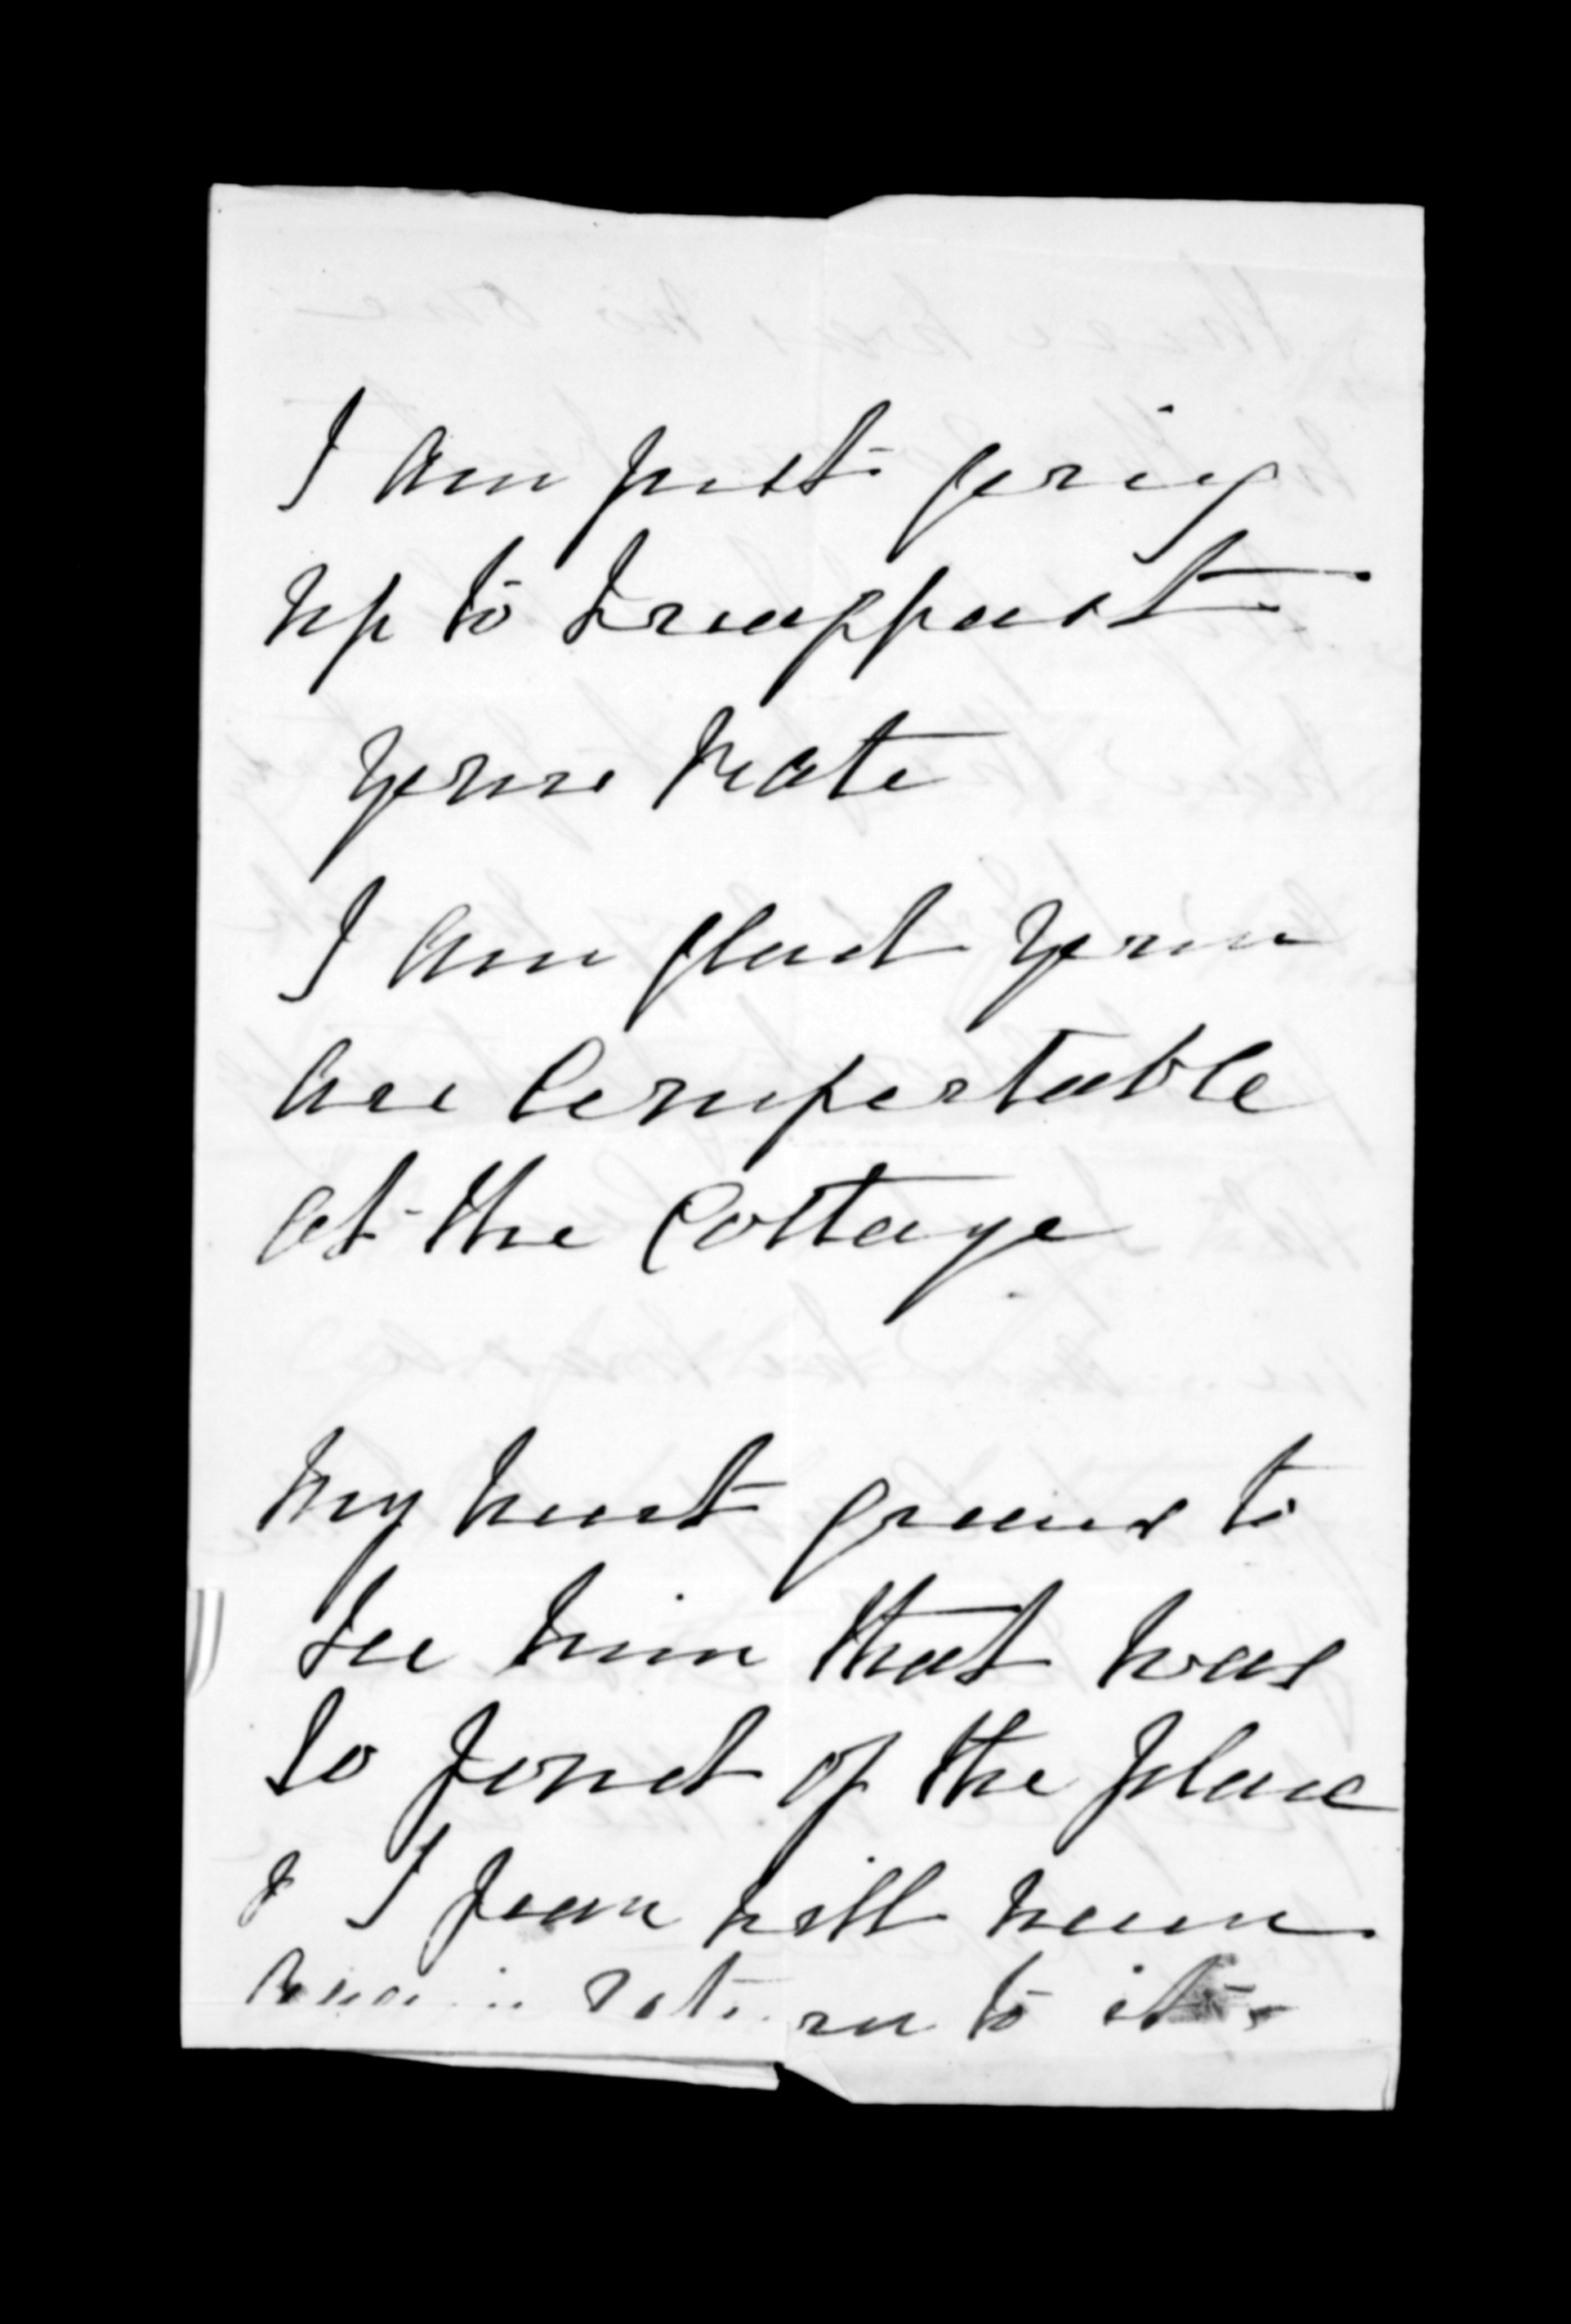 I am just going
up to
your note
I am glad you
are Comfortable
at the Cottage
My heart grieves to
see him that was
so fond of the place
& I fear will never
again return to it.